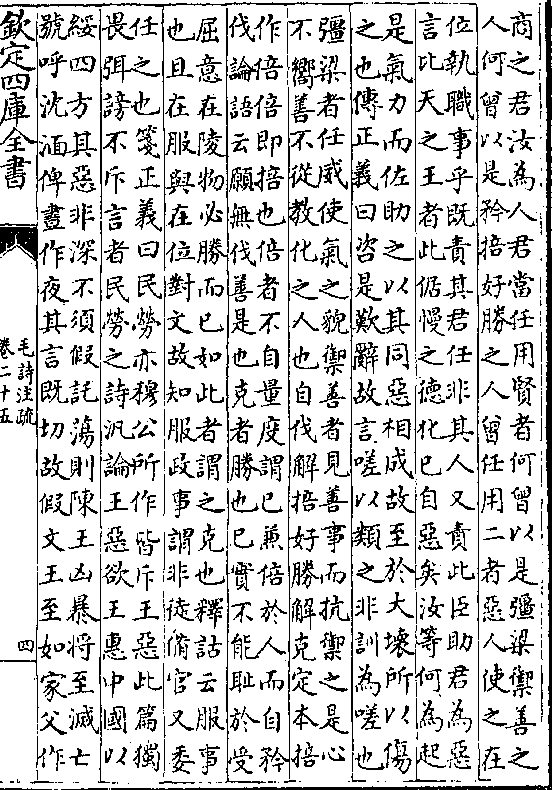 商之君汝為人君當任用賢者何曾以是彊梁禦善之
人何曾以是矜掊好勝之人曾任用二者惡人使之在
位執職事乎既責其君任非其人又責此臣助君為惡
言比天之王者此倨慢之德化已自惡矣汝等何為起
是氣力而佐助之以其同惡相成故至於大壞所以傷
之也傳正義曰咨是歎辭故言嗟以類之非訓為嗟也
彊梁者任威使氣之貌禦善者見善事而抗禦之是心
不嚮善不從教化之人也自伐解掊好勝解克定本掊
作倍倍即掊也倍者不自量度謂已兼倍於人而自矜
伐論語云願無伐善是也克者勝也已實不能恥於受
屈意在陵物必勝而已如此者謂之克也釋詁云服事
也且在服與在位對文故知服政事謂非徒備官又委
任之也箋正義曰民勞亦穆公所作皆斥王惡此篇獨
畏弭謗不斥言者民勞之詩汎論王惡欲王惠中國以
綏四方其惡非深不須假託蕩則陳王凶暴將至滅亡
號呼沈湎俾晝作夜其言既切故假文王至如家父作
欽定四庫全書
毛詩注疏
卷二十五
四